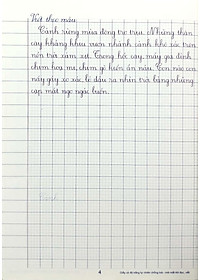 Viết theo mẫu
Cảnh rừng mùa đông trơ trụi. Những thân
cây khẳng khiu vươn nhánh cành khô xác trên
nền trời xám xịt. Trong hốc cây, mấy gia đình
chim họa mi, chim gõ kiến ẩn náu. Con nào con
nấy gầy xơ xác, lo âu ra nhìn trời bằng những
cặp mắt ngơ ngác buồn.
4